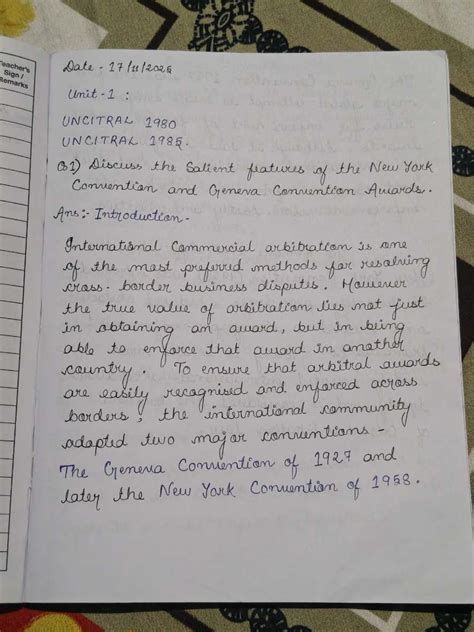 Teacher's
Sign /
Remarks
Date - 17/11/2025
Unit-1 :
UNCITRAL 1980
UNCITRAL 1985.
Q1) Discuss the Salient features of the New York
Convention and Geneva Convention Awards.
Ans:- Introduction -
International Commercial arbitration is one
of the most preferred methods for resolving
cross-border business disputes. However
the true value of arbitration lies not just
in obtaining an award, but in being
able to enforce that award in another
country. To ensure that arbitral awards
are easily recognised and enforced across
borders, the international community
adopted two major conventions -
The Geneva Convention of 1927 and
later the New York Convention of 1958.